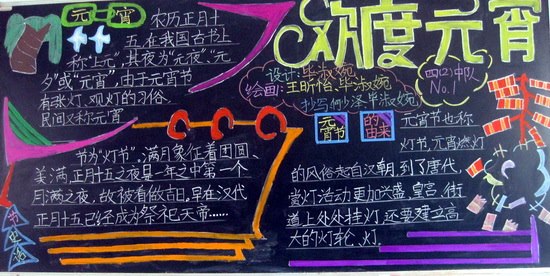 元宵
农历正月十
五,在我国古书上
称"上元",其夜为"元夜"、"元
夕"或"元宵",由于元宵节
有张灯、观灯的习俗,
民间又称元宵
节为"灯节",满月象征着团圆、
美满,正月十五之夜是一年之中第一个
月满之夜,故被看做吉日,早在汉代
正月十五已经成为祭祀天帝……
欢度元宵
设计:毕淑婉
绘画:王昕怡、毕淑婉
抄写:何少泽 毕淑婉
四(2)中队
No.1
元宵节
的由来
元宵节也称
灯节,元宵燃灯
的风俗起自汉朝,到了唐代,
赏灯活动更加兴盛,皇宫、街
道上处处挂灯,还要建立高
大的灯轮、灯